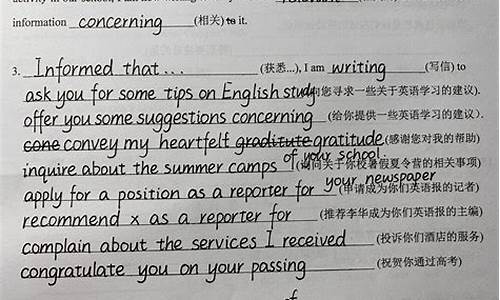 information concerning (相关) to it.
3. Informed that... (获悉...), I am writing (写信) to
ask you for some tips on English study 向您寻求一些关于英语学习的建议).
offer you some suggestions concerning (给你提供一些英语学习的建议).
convey my heartfelt graditute gratitude (感谢您对我的帮助)
inquire about the summer camps of your school. (询问关于你校暑假夏令营的相关事项)
apply for a position as a reporter for your newspaper (申请成为你们英语报的记者)
recommend x as a reporter for (推荐李华成为你们英语报的主编)
complain about the services I received (投诉你们酒店的服务)
congratulate you on your passing (祝贺你通过高考)
of